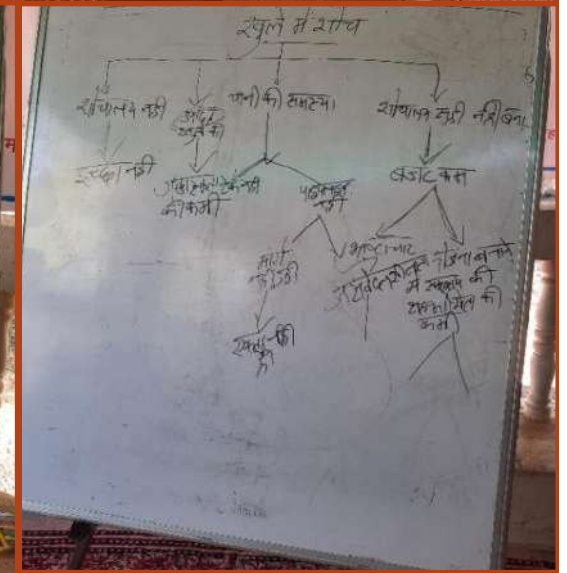 खुले में शौच
शौचालय नहीं
आदत
खुले की
पानी की समस्या
शौचालय सही नहीं बना
इच्छा नहीं
जागरूकता
की कमी
टैंक नहीं
पाइपलाइन
नहीं
बजट कम
मांग
नहीं रखी
भ्रष्टाचार
योजना बनाने
में समुदाय की
सहभागिता की
कमी
एकता नहीं
है